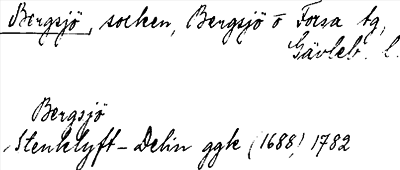 Bergsjö, socken, Bergsjö o Forsa tg,
Gävleb. l.
Bergsjö
Stenklyft - Delin ggk (1688) 1782